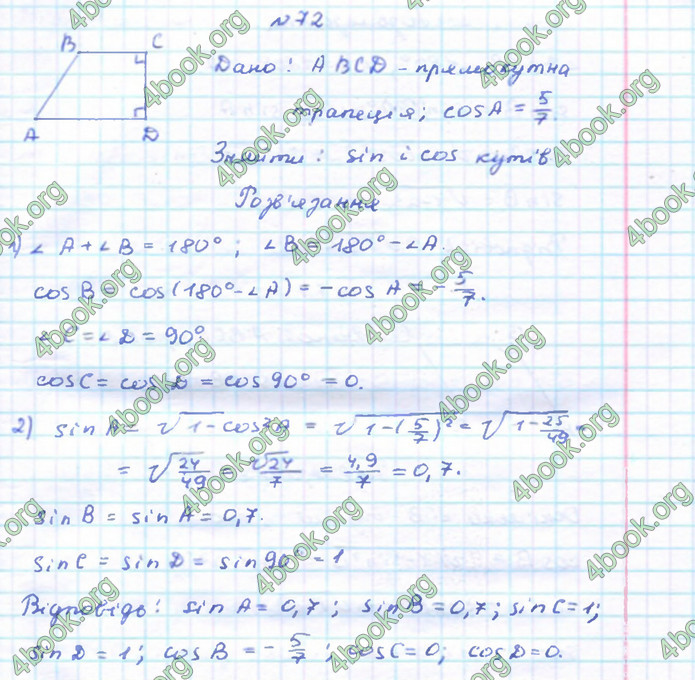 №72
B C
A D
Дано: ABCD - прямокутна
трапеція; cos A = 5/7.
Знайти: sin і cos кутів
Розв'язання
1) ∠A + ∠B = 180°; ∠B = 180° - ∠A.
cos B = cos(180° - ∠A) = -cos A = -5/7.
∠C = ∠D = 90°
cos C = cos D = cos 90° = 0.
2) sin A = √(1 - cos² A) = √(1 - (5/7)²) = √(1 - 25/49) =
= √(24/49) = √24/7 = 4,9/7 = 0,7.
sin B = sin A = 0,7.
sin C = sin D = sin 90° = 1
Відповідь: sin A = 0,7; sin B = 0,7; sin C = 1;
sin D = 1; cos B = -5/7; cos C = 0; cos D = 0.
4book.org